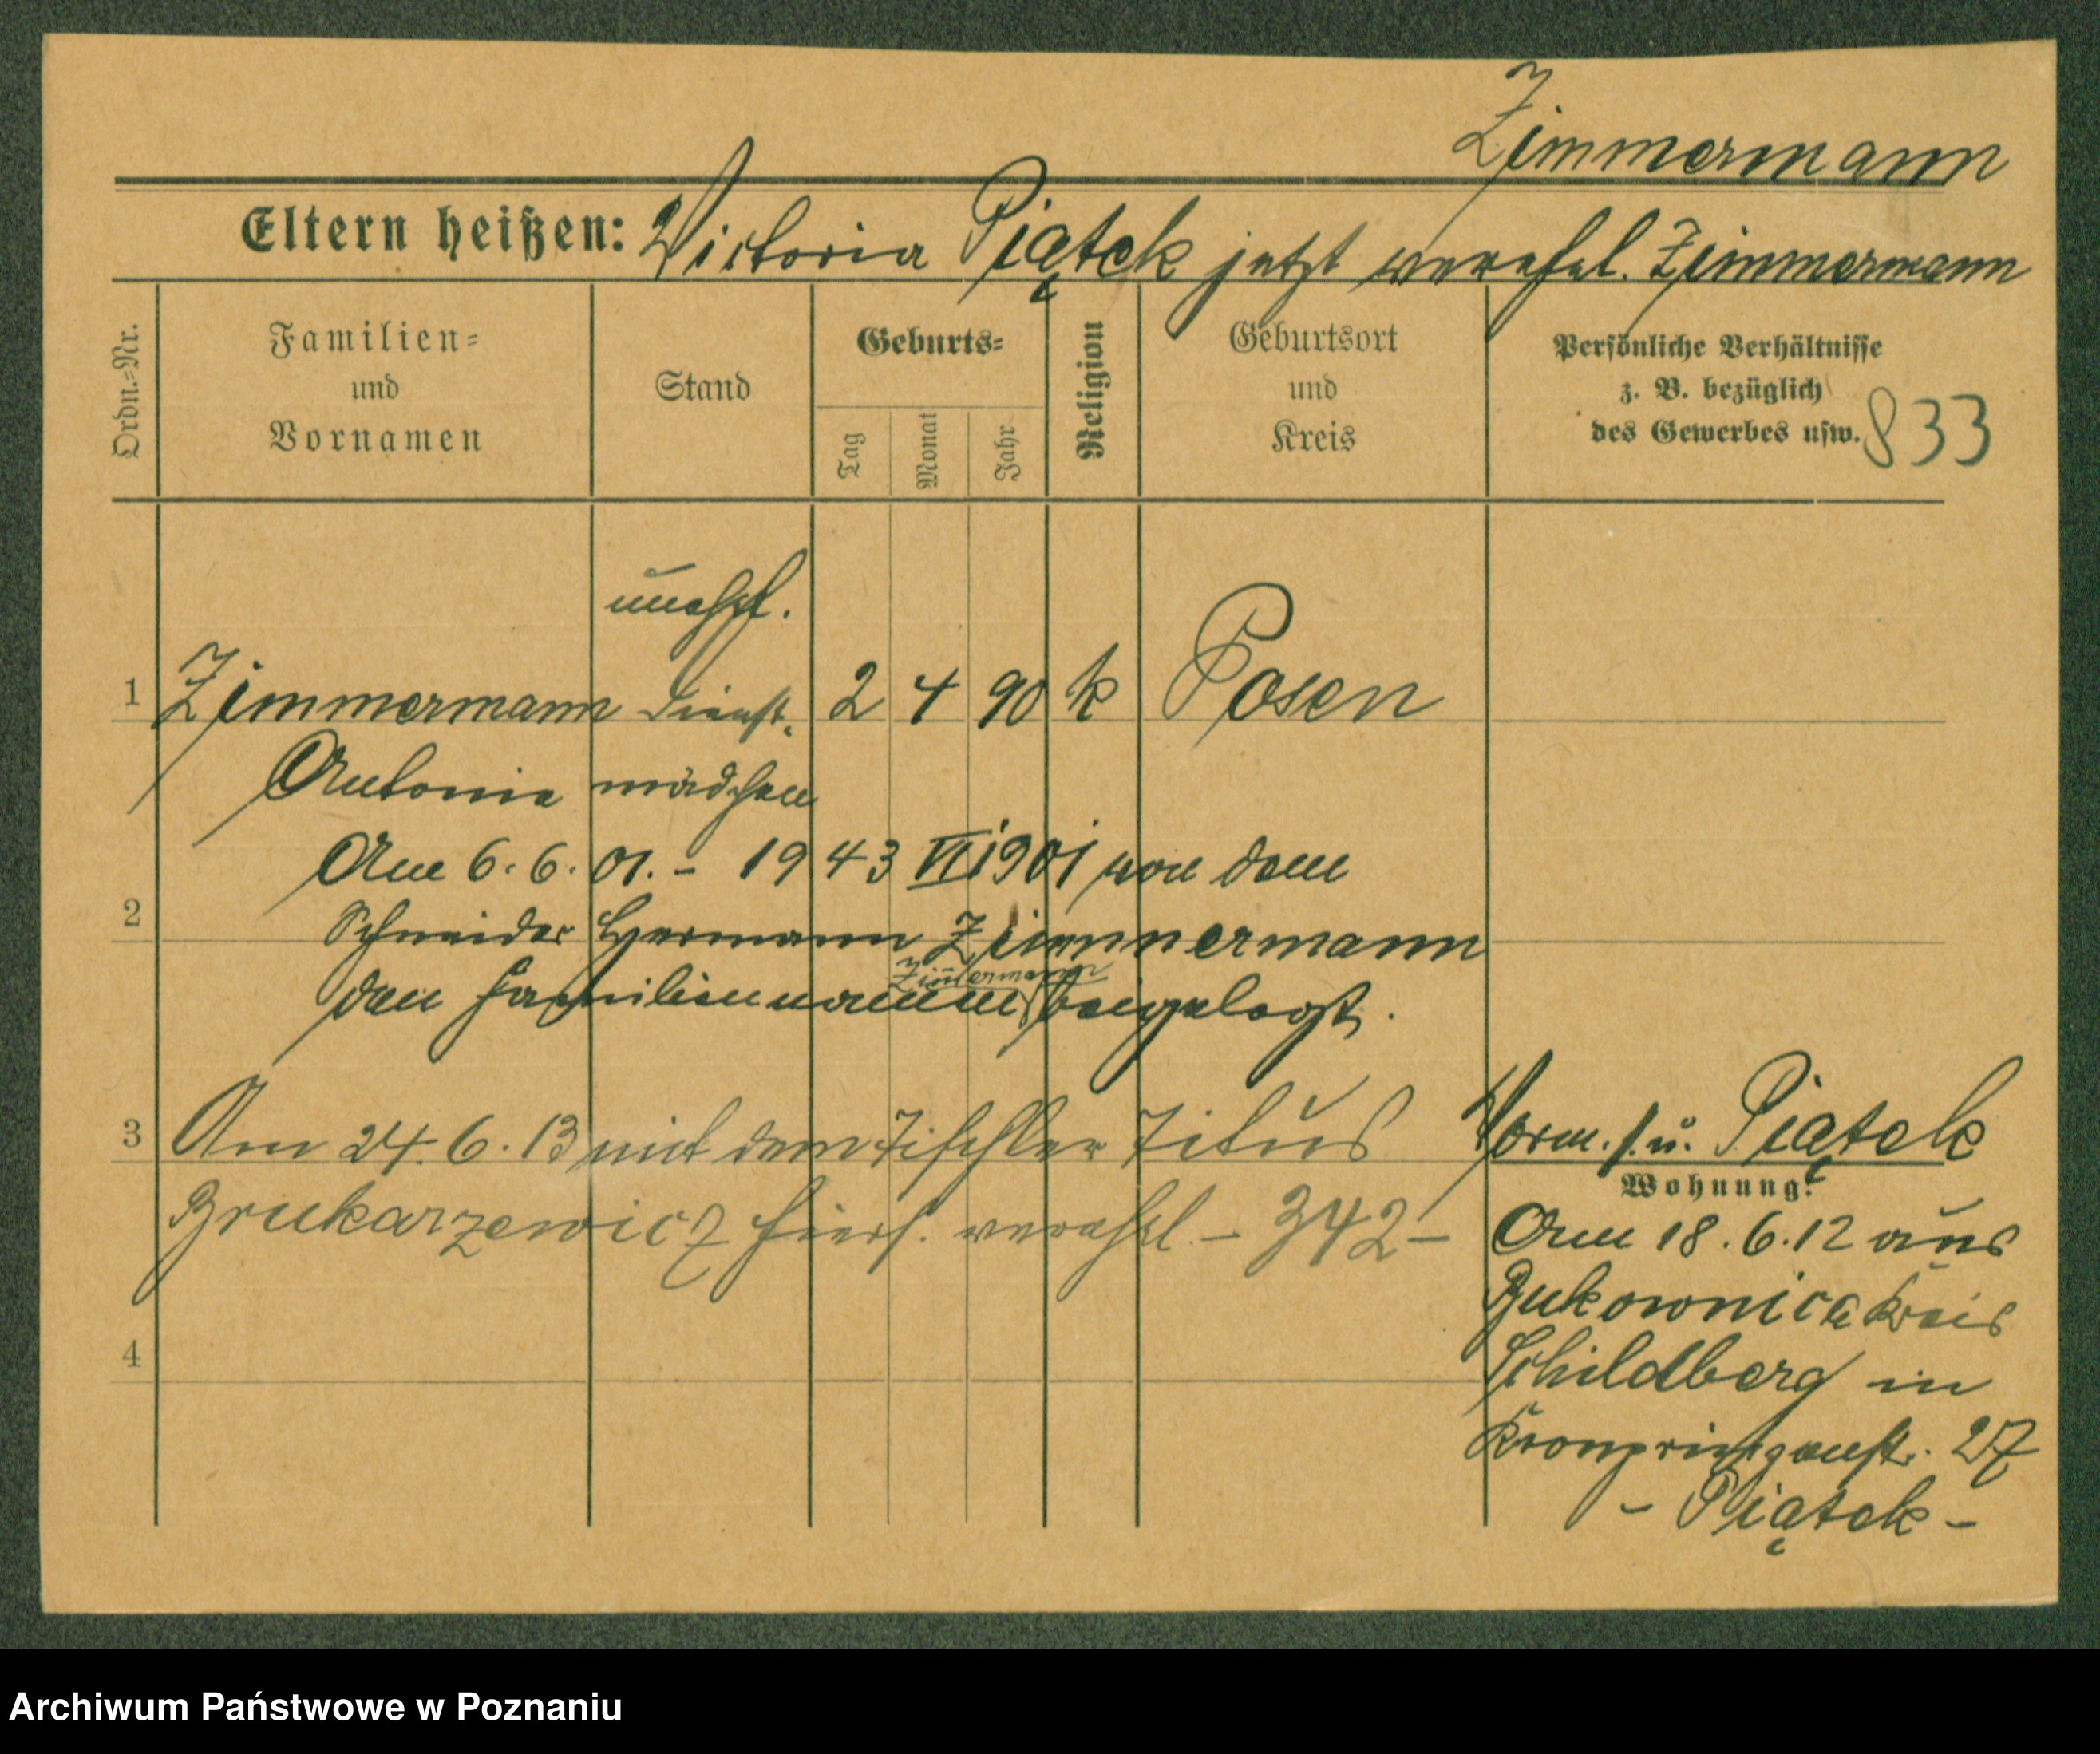 Zimmermann
Eltern heißen: Victoria Piątek jetzt verehel. Zimmermann
Ordn.-Nr.
Familien-
und
Vornamen
Stand
Geburts-
Tag
Monat
Jahr
Religion
Geburtsort
und
Kreis
Persönliche Verhältnisse
z. B. bezüglich
des Gewerbes usw.
833
unehel.
1 Zimmermann Dienst- 2 4 90 k Posen
Antonie mädchen
Am 6. 6. 01. - 1943 VI 1901 von dem
2
Schneider Hermann Zimmermann
Zimermann
den Familiennamen beigelegt.
3 Am 24. 6. 13 mit dem Tischler Titus
Brukarzewicz hiers. verehel. - 342 -
4
Vorm. s. u. Piątek
Wohnung:
Am 18. 6. 12 aus
Bukownica Kreis
Schildberg in
Kronprinzenstr. 27
- Piątek -
Archiwum Państwowe w Poznaniu